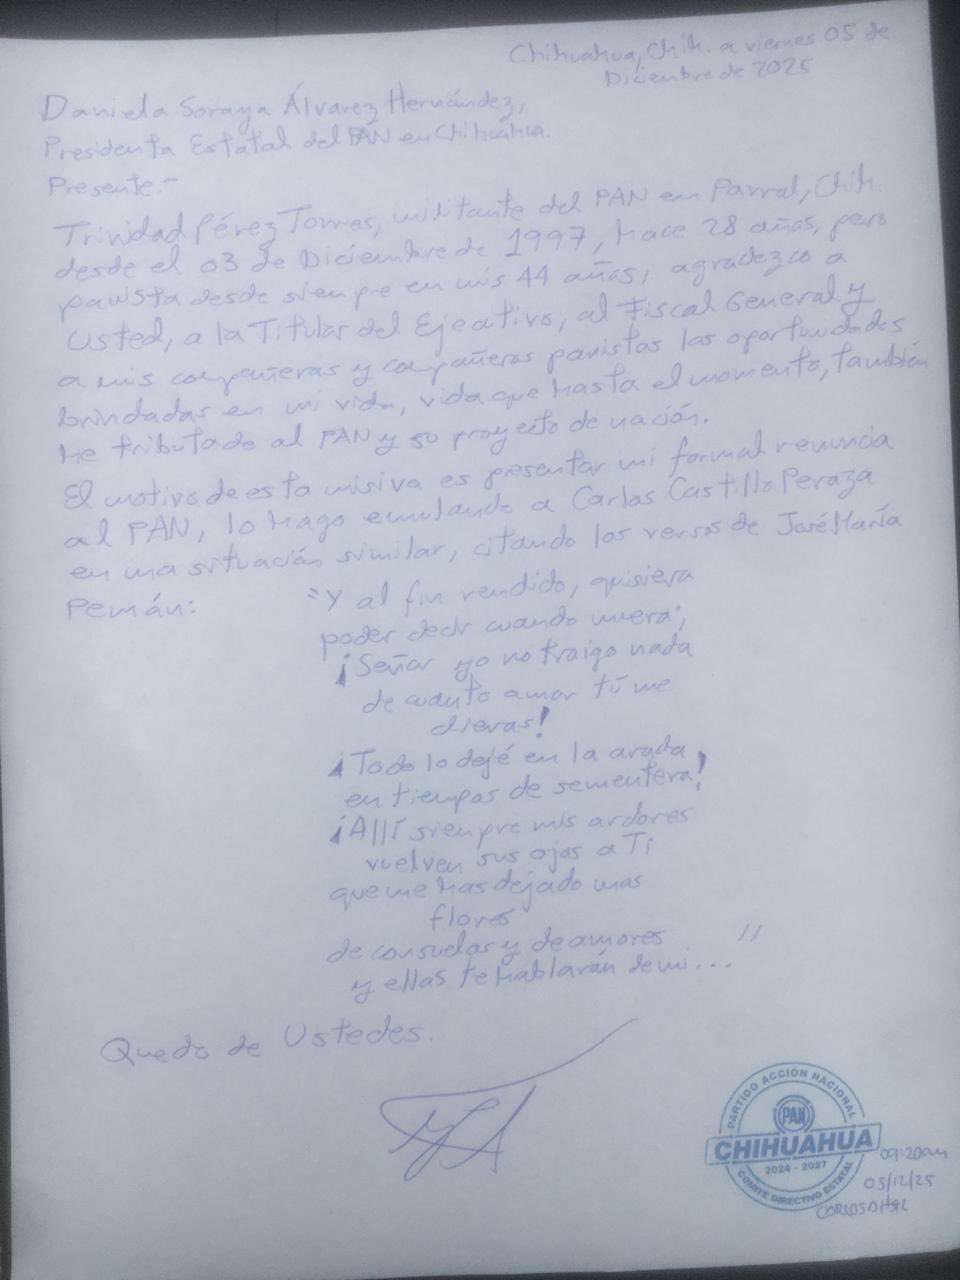 Chihuahua, Chih. a viernes 05 de
Diciembre de 2025
Daniela Soraya Álvarez Hernández,
Presidenta Estatal del PAN en Chihuahua.
Presente.-
Trinidad Pérez Torres, militante del PAN en Parral, Chih.
desde el 03 de Diciembre de 1997, hace 28 años, pero
panista desde siempre en mis 44 años, agradezco a
Usted, a la Titular del Ejecutivo, al Fiscal General y
a mis compañeras y compañeros panistas las oportunidades
brindadas en mi vida, vida que hasta el momento, también
he tributado al PAN y su proyecto de nación.
El motivo de esta misiva es presentar mi formal renuncia
al PAN, lo hago emulando a Carlos Castillo Peraza
en una situación similar, citando los versos de José María
Pemán:
"Y al fin rendido, quisiera
poder decir cuando muera;
¡Señor yo no traigo nada
de cuanto amor tú me
dieras!
¡Todo lo dejé en la arada
en tiempos de sementera!
¡Allí siempre mis ardores
vuelven sus ojos a Ti
que me has dejado unas
flores
de consuelos y de amores
y ellas te hablarán de mi... "
Quedo de Ustedes.
PARTIDO ACCIÓN NACIONAL
PAN
CHIHUAHUA
2024 - 2027
COMITÉ DIRECTIVO ESTATAL
09:20am
05/12/25